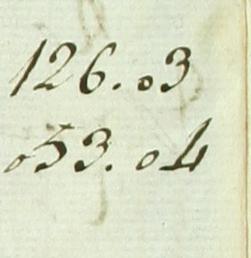 126.03
053.04